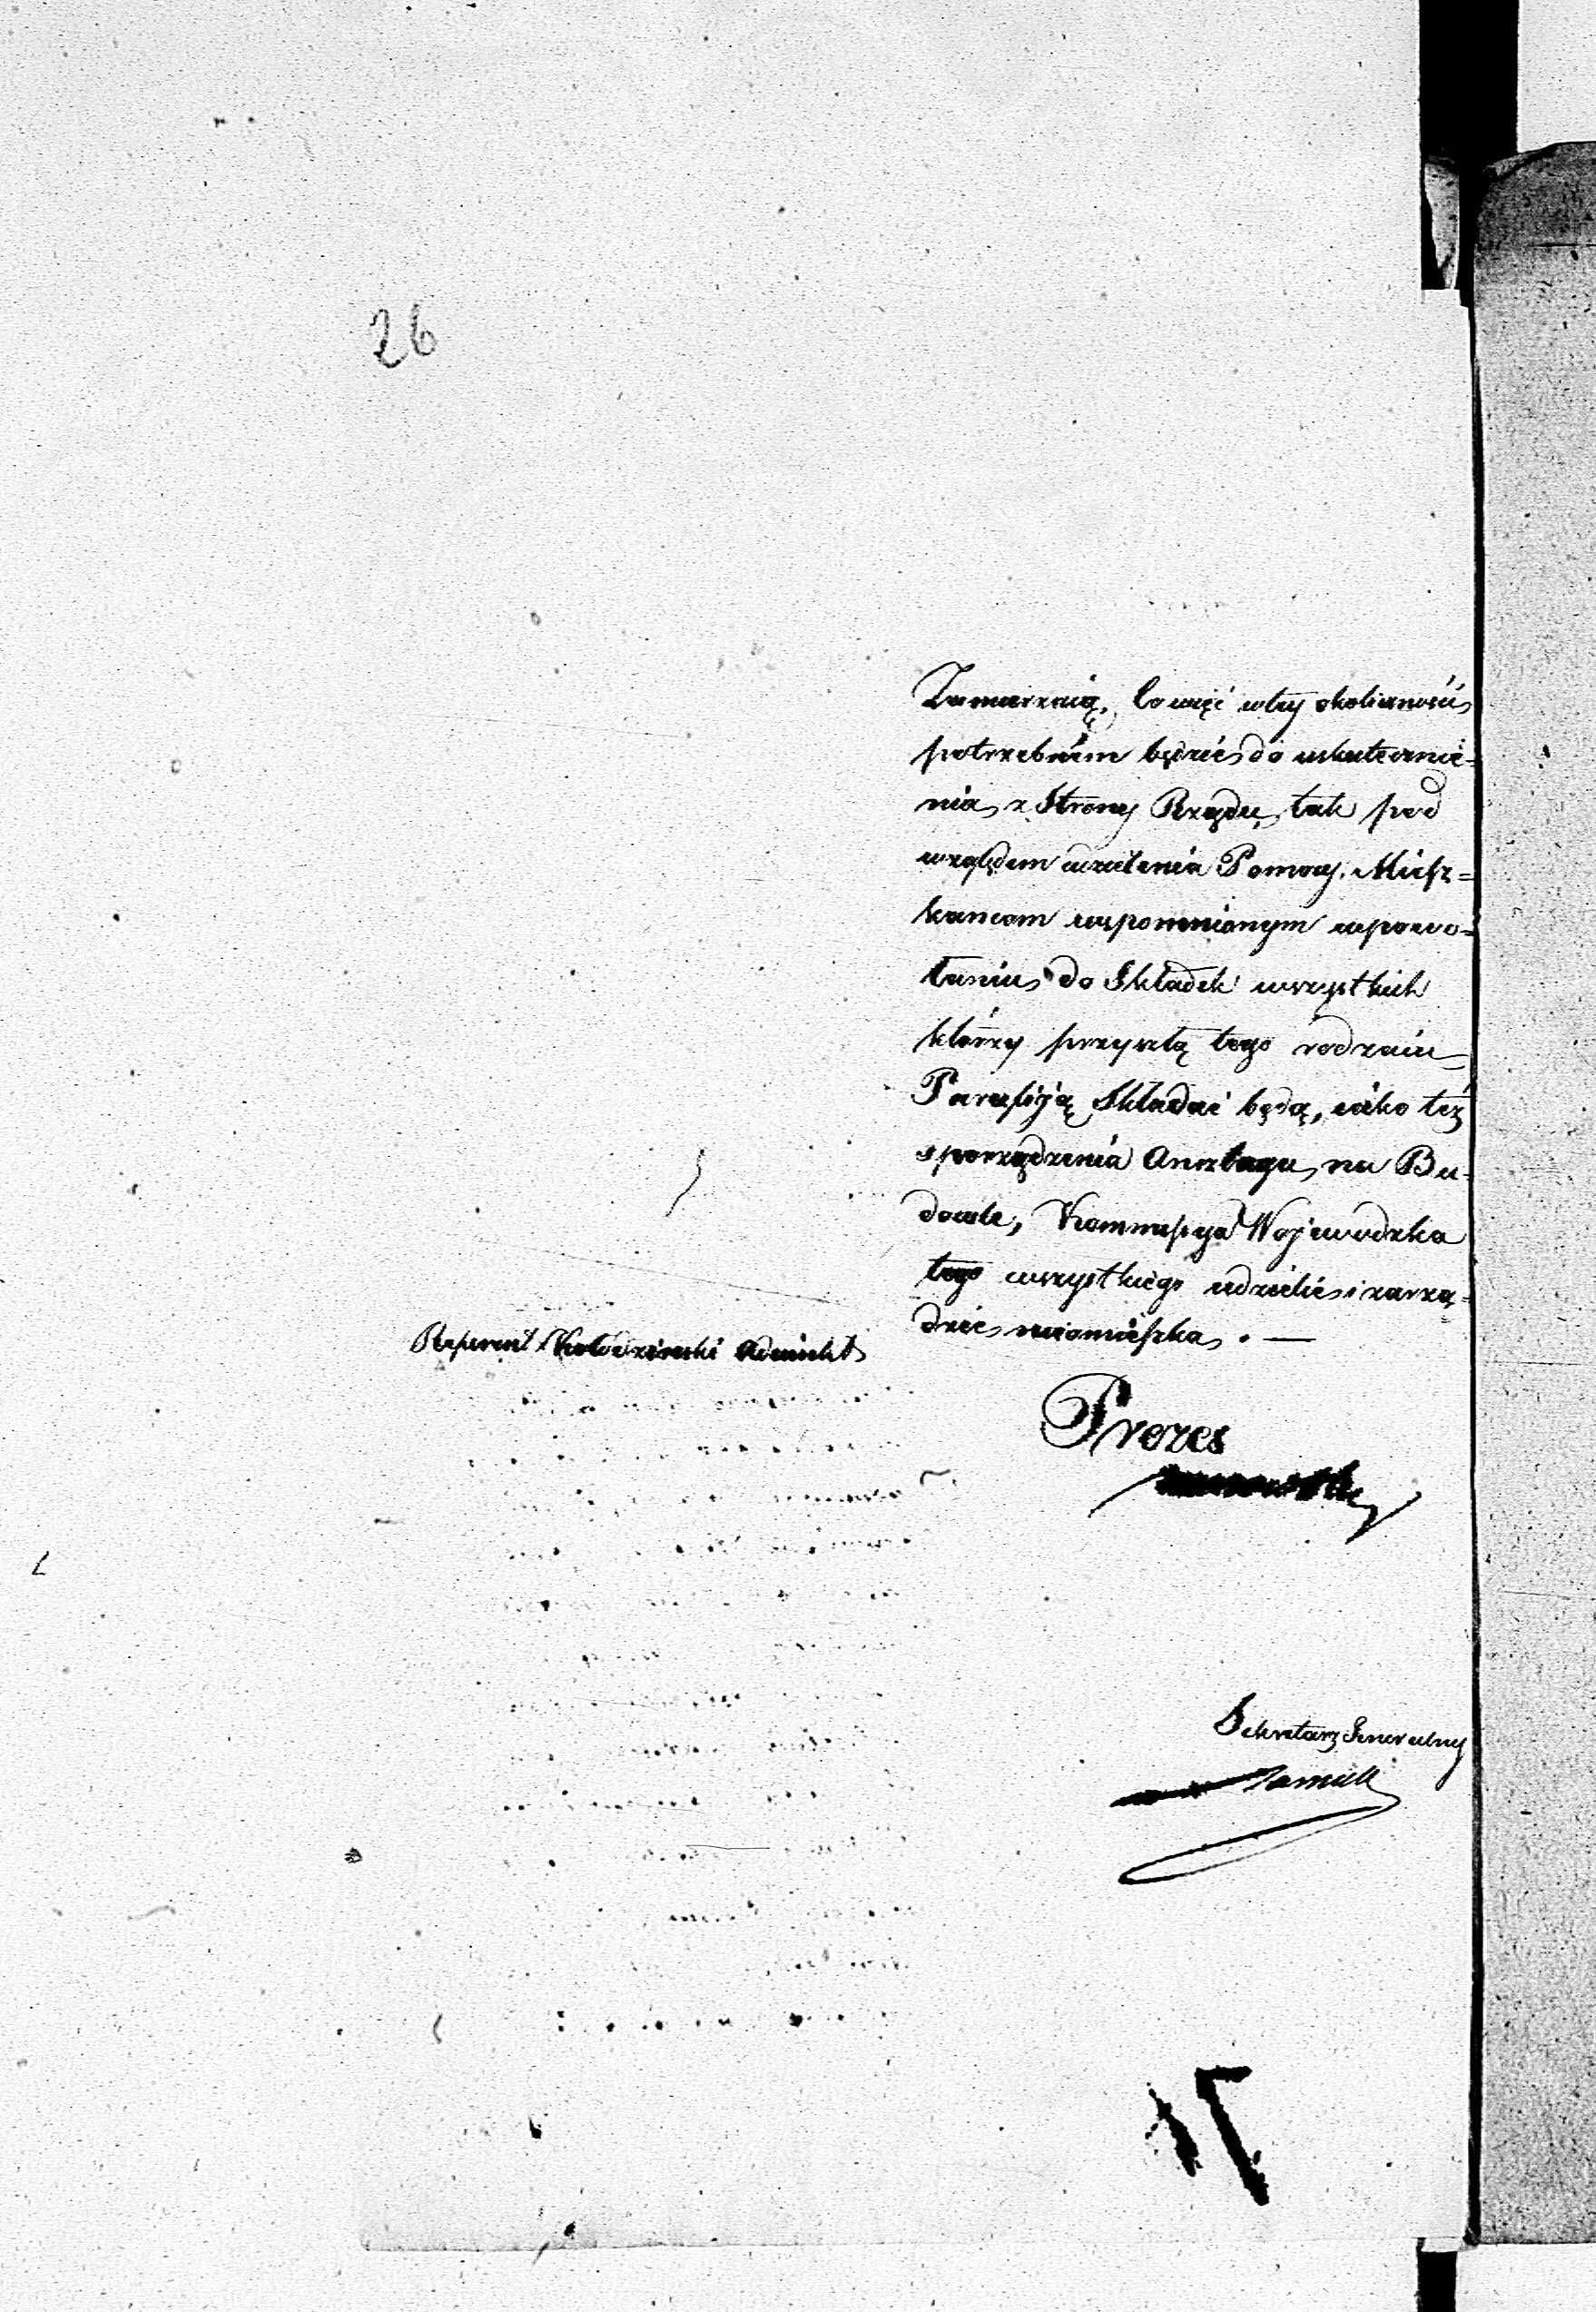 26
Zamarzaią, Co więc w tey okoliczności
potrzebném będzie do uskutecznie-
nia z Strony Rządu, tak pod
względem udzielenia Pomocy Miesz-
kancom wspomnionym w powo-
łaniu do Składek wszystkich
którzy przyszłą tego rodzaiu
Parafiją Składać będą, iako téż
sporządzenia Anszlagu na Bu-
dowle, Kommissya Wojewodzka
tego wszystkiego udzielić i zarzą-
dzić nieomieszka. —
Referent Kołodzinski Adiunkt
Prezes
Sekretarz Generalny